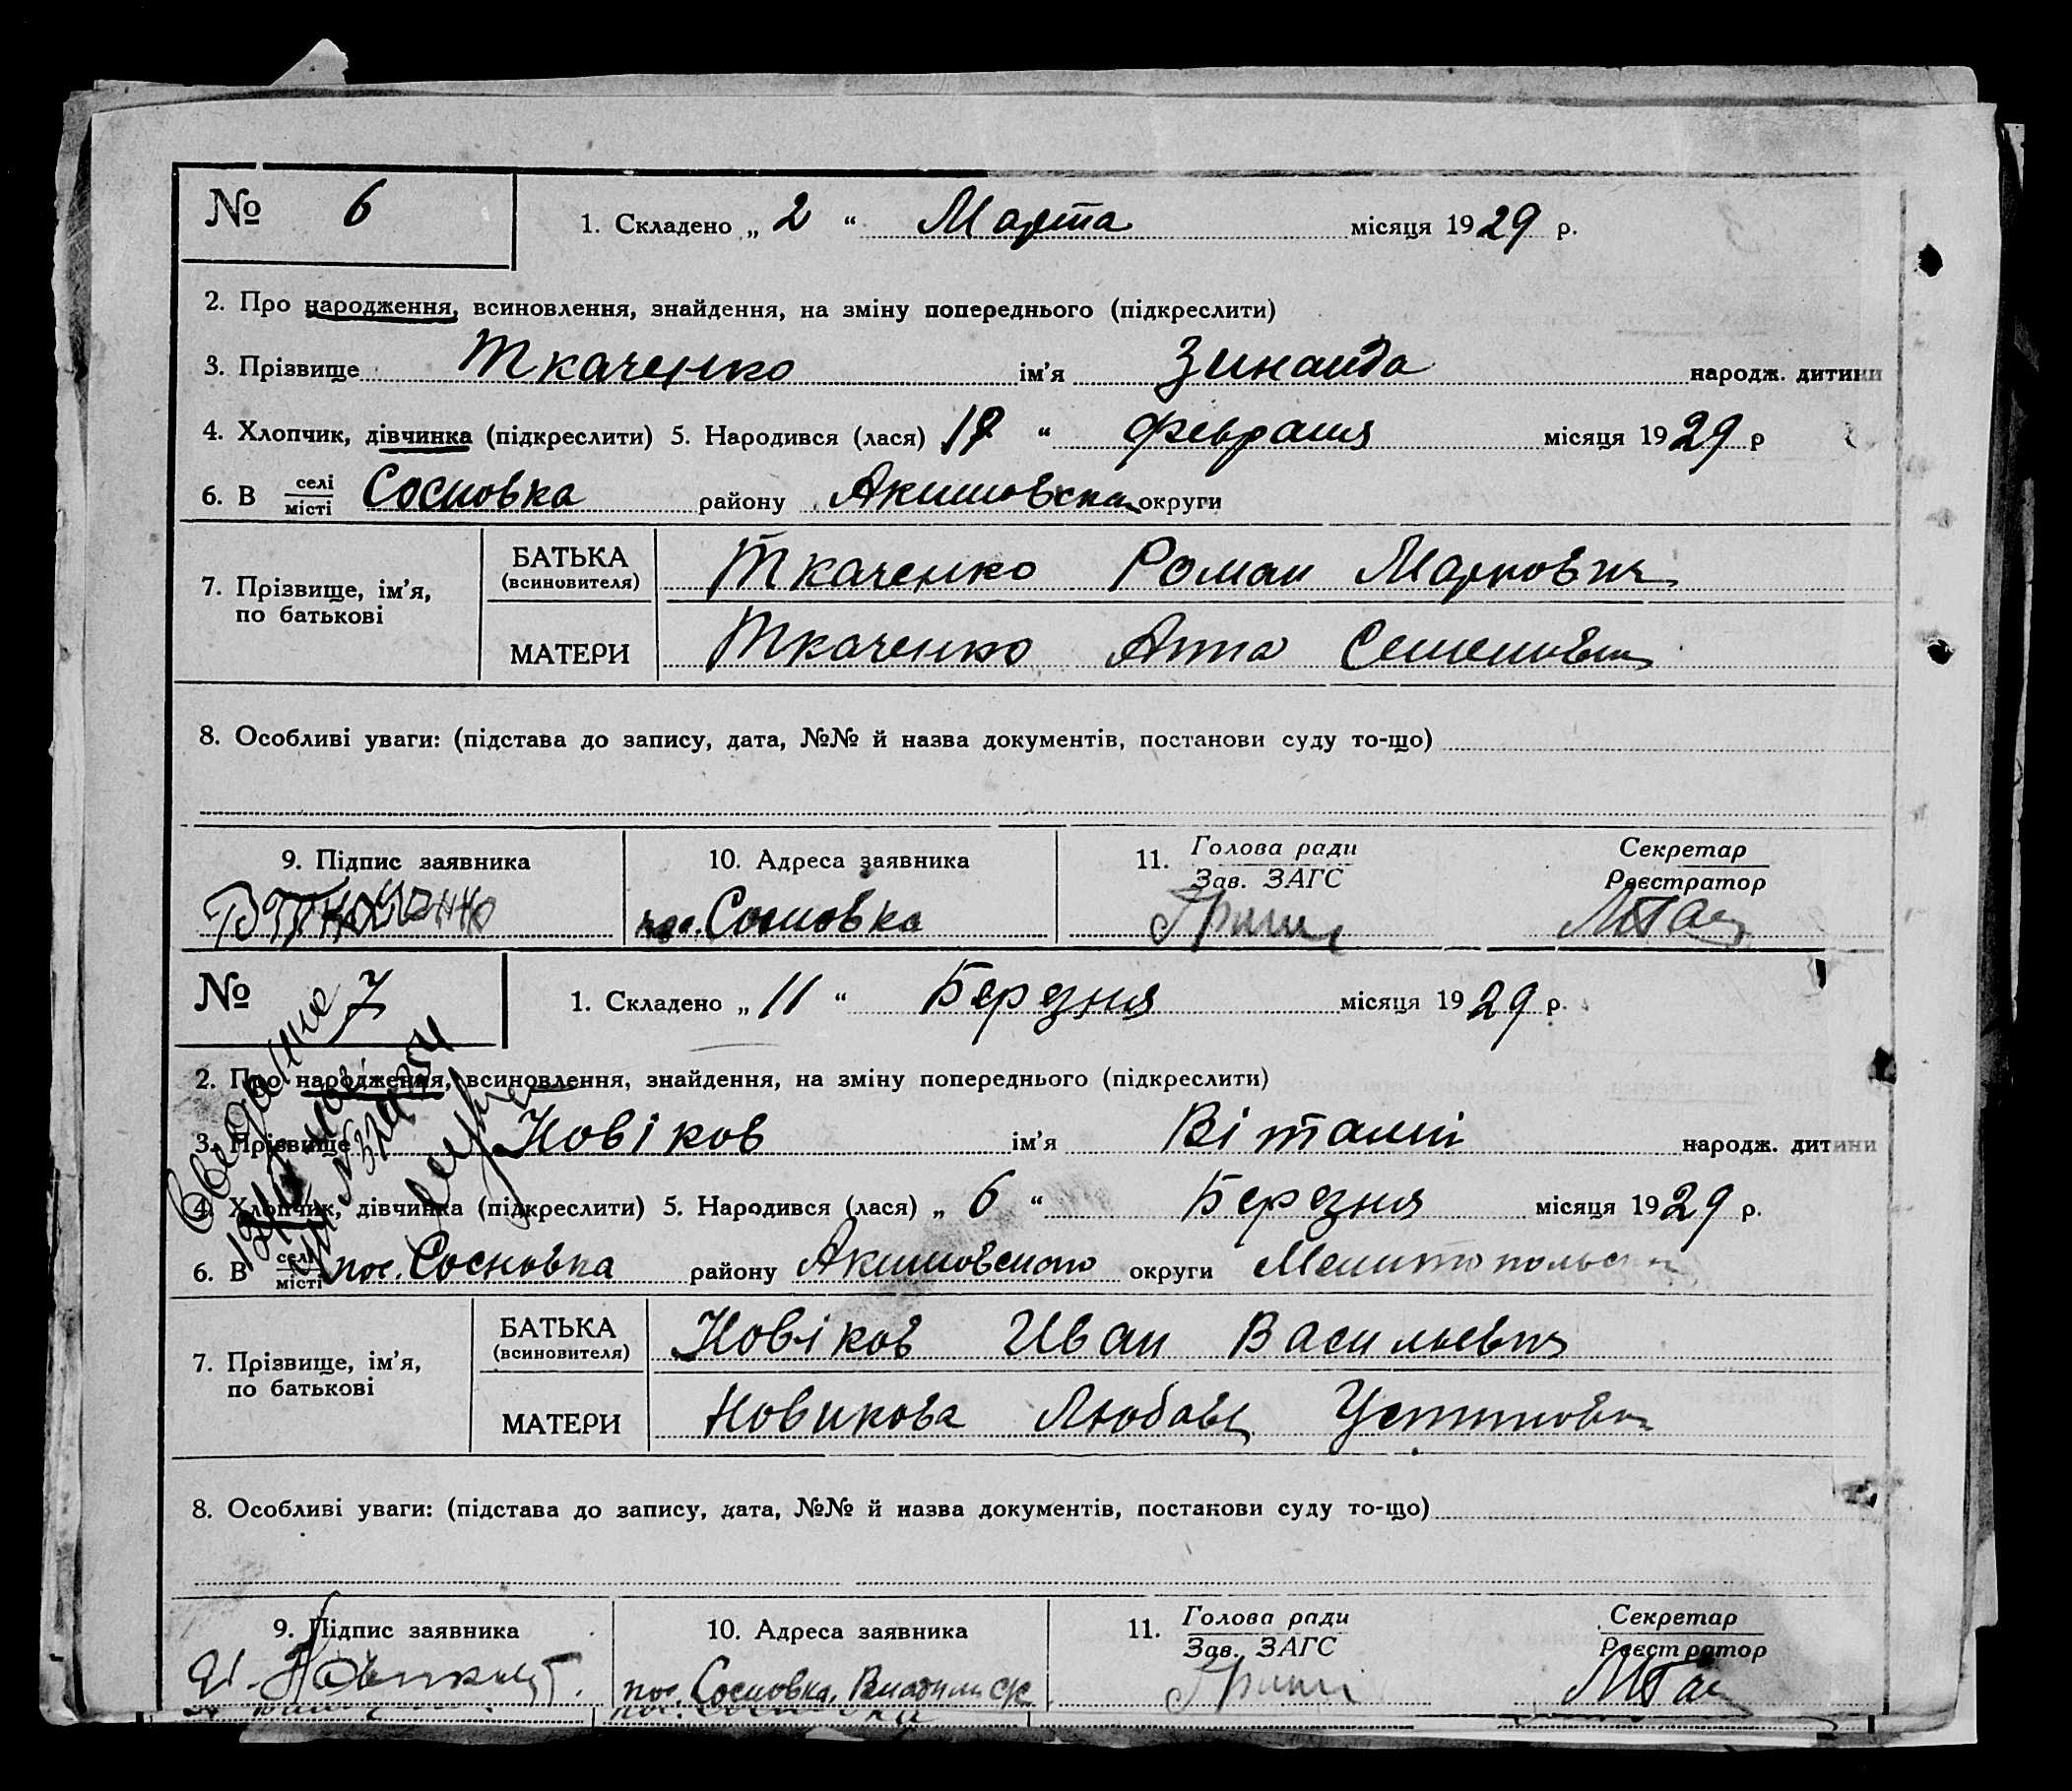 № 6
1. Складено „ 2 “ Марта місяця 1929 р.
2. Про народження, всиновлення, знайдення, на зміну попереднього (підкреслити)
3. Прізвище Ткаченко ім’я Зинаида народж. дитини
4. Хлопчик, дівчинка (підкреслити) 5. Народився (лася) “ Февраля місяця 1929 р
6. В селі/місті Сосновка району Акимовска округи
7. Прізвище, ім’я, по батькові
БАТЬКА (всиновителя) Ткаченко Роман Маркович
МАТЕРИ Ткаченко Анна Семеновна
8. Особливі уваги: (підстава до запису, дата, №№ й назва документів, постанови суду то-що)
9. Підпис заявника
10. Адреса заявника
11. Голова ради / Зав. ЗАГС
Секретар / Реєстратор
пос. Сосновка
№ 7
1. Складено „ 11 “ Березня місяця 1929 р.
2. Про народження, всиновлення, знайдення, на зміну попереднього (підкреслити)
3. Прізвище Новіков ім’я Віталій народж. дитини
4. Хлопчик, дівчинка (підкреслити) 5. Народився (лася) „ 6 “ Березня місяця 1929 р.
6. В селі/місті пос. Сосновка району Акимовского округи
7. Прізвище, ім’я, по батькові
БАТЬКА (всиновителя) Новіков Иван Васильевич
МАТЕРИ Новикова Любовь Устиновна
8. Особливі уваги: (підстава до запису, дата, №№ й назва документів, постанови суду то-що)
9. Підпис заявника
10. Адреса заявника
11. Голова ради / Зав. ЗАГС
Секретар / Реєстратор
пос. Сосновка,